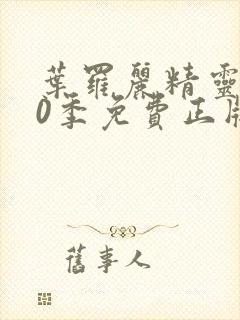 葉羅麗精靈
0季免費正版
舊事人